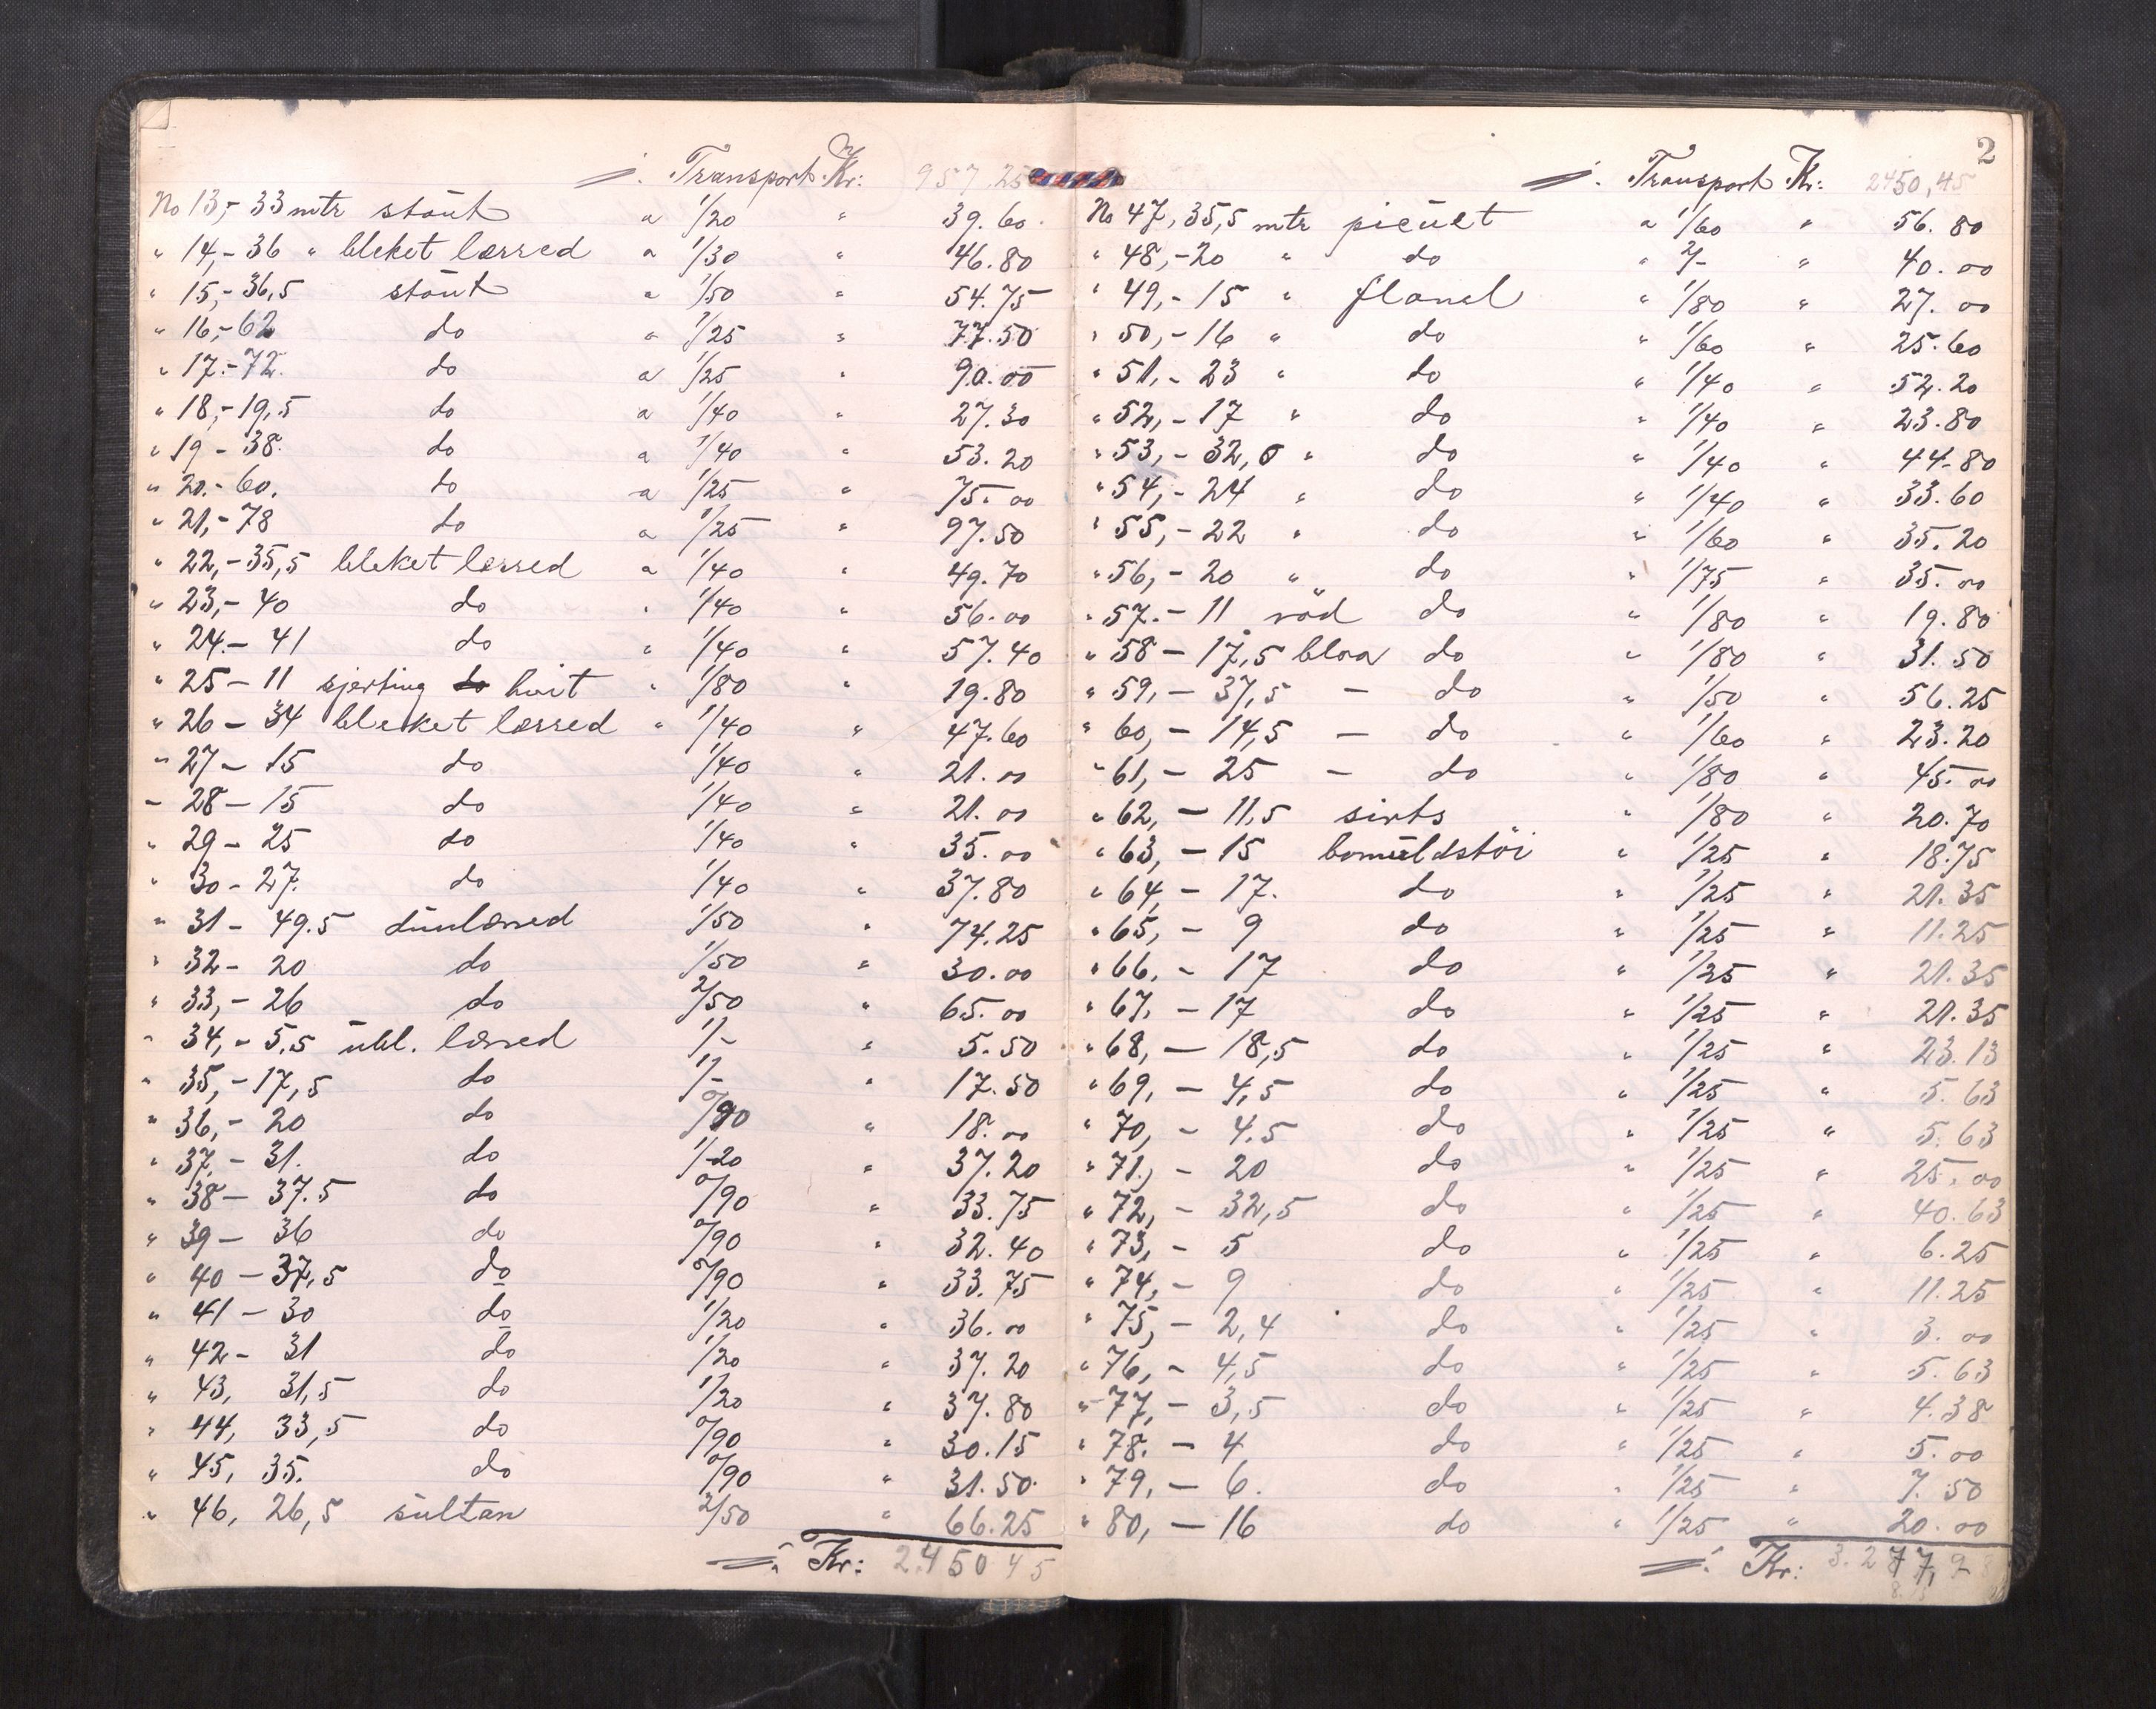 Transport Kr: 957.25
No 13,- 33 mtr stout a 1/20 " 39.60
" 14,- 36 " bleket lerred a 1/30 " 46.80
" 15,- 36,5 stout a 1/50 " 54.75
" 16,- 62 do " 1/25 " 77.50
" 17.- 72. do a 1/25 " 90.00
" 18,- 19,5 do a 1/40 " 27.30
" 19 - 38. do a 1/40 " 53.20
" 20.- 60. do a 1/25 " 75.00
" 21,- 78 do a 1/25 " 97.50
" 22,- 35,5 bleket lerred a 1/40 " 49.70
" 23,- 40 do " 1/40 " 56.00
" 24.- 41 do " 1/40 " 57.40
" 25 - 11 sjerting do hvit " 1/80 " 19.80
" 26 - 34 bleket lerred " 1/40 " 47.60
" 27 - 15 do 1/40 " 21.00
" 28 - 15 do 1/40 " 21.00
" 29 - 25 do 1/40 " 35.00
" 30 - 27. do 1/40 " 37.80
" 31 - 49.5 dunlerred 1/50 " 74.25
" 32 - 20 do 1/50 " 30.00
" 33,- 26 do 2/50 " 65.00
" 34,- 5,5 ubl. lerred 1/- " 5.50
" 35,- 17,5 do 1/- " 17.50
" 36,- 20 do 0/90 " 18.00
" 37,- 31. do 1/20 " 37.20
" 38 - 37.5 do 0/90 " 33.75
" 39 - 36 do 0/90 " 32.40
" 40 - 37,5 do 0/90 " 33.75
" 41 - 30 do 1/20 " 36.00
" 42 - 31 do 1/20 " 37.20
" 43, 31,5 do 1/20 " 37.80
" 44, 33,5 do 0/90 " 30.15
" 45, 35. do 0/90 " 31.50
" 46, 26,5 sultan 2/50 " 66.25
Kr: 2.450 45
2
Transport Kr: 2450,45
No 47, 35,5 mtr picuet a 1/60 " 56.80
" 48,- 20 " do " 2/- " 40.00
" 49,- 15 " flanel " 1/80 " 27.00
" 50,- 16 " do " 1/60 " 25.60
" 51,- 23 " do " 1/40 " 52.20
" 52,- 17 " do " 1/40 " 23.80
" 53,- 32,0 " do " 1/40 " 44.80
" 54,- 24 " do " 1/40 " 33.60
" 55,- 22 " do " 1/60 " 35.20
" 56,- 20 " do " 1/75 " 35.00
" 57.- 11 röd do " 1/80 " 19.80
" 58 - 17,5 blaa do " 1/80 " 31.50
" 59,- 37,5 - do " 1/50 " 56.25
" 60,- 14,5 - do " 1/60 " 23.20
" 61,- 25 - do " 1/80 " 45.00
" 62,- 11,5 sirts " 1/80 " 20.70
" 63,- 15 bomuldstöi " 1/25 " 18.75
" 64,- 17. do " 1/25 " 21.35
" 65,- 9 do " 1/25 " 11.25
" 66.- 17 do " 1/25 " 21.35
" 67,- 17 do " 1/25 " 21.35
" 68,- 18,5 do " 1/25 " 23.13
" 69,- 4,5 do " 1/25 " 5.63
" 70,- 4.5 do " 1/25 " 5.63
" 71,- 20 do " 1/25 " 25.00
" 72,- 32,5 do " 1/25 " 40.63
" 73,- 5 do " 1/25 " 6.25
" 74,- 9 do " 1/25 " 11.25
" 75,- 2,4 do " 1/25 " 3.00
" 76,- 4,5 do " 1/25 " 5.63
" 77,- 3,5 do " 1/25 " 4.38
" 78.- 4 do " 1/25 " 5.00
" 79,- 6. do " 1/25 " 7.50
" 80,- 16 do " 1/25 " 20.00
Kr: 3.277,9